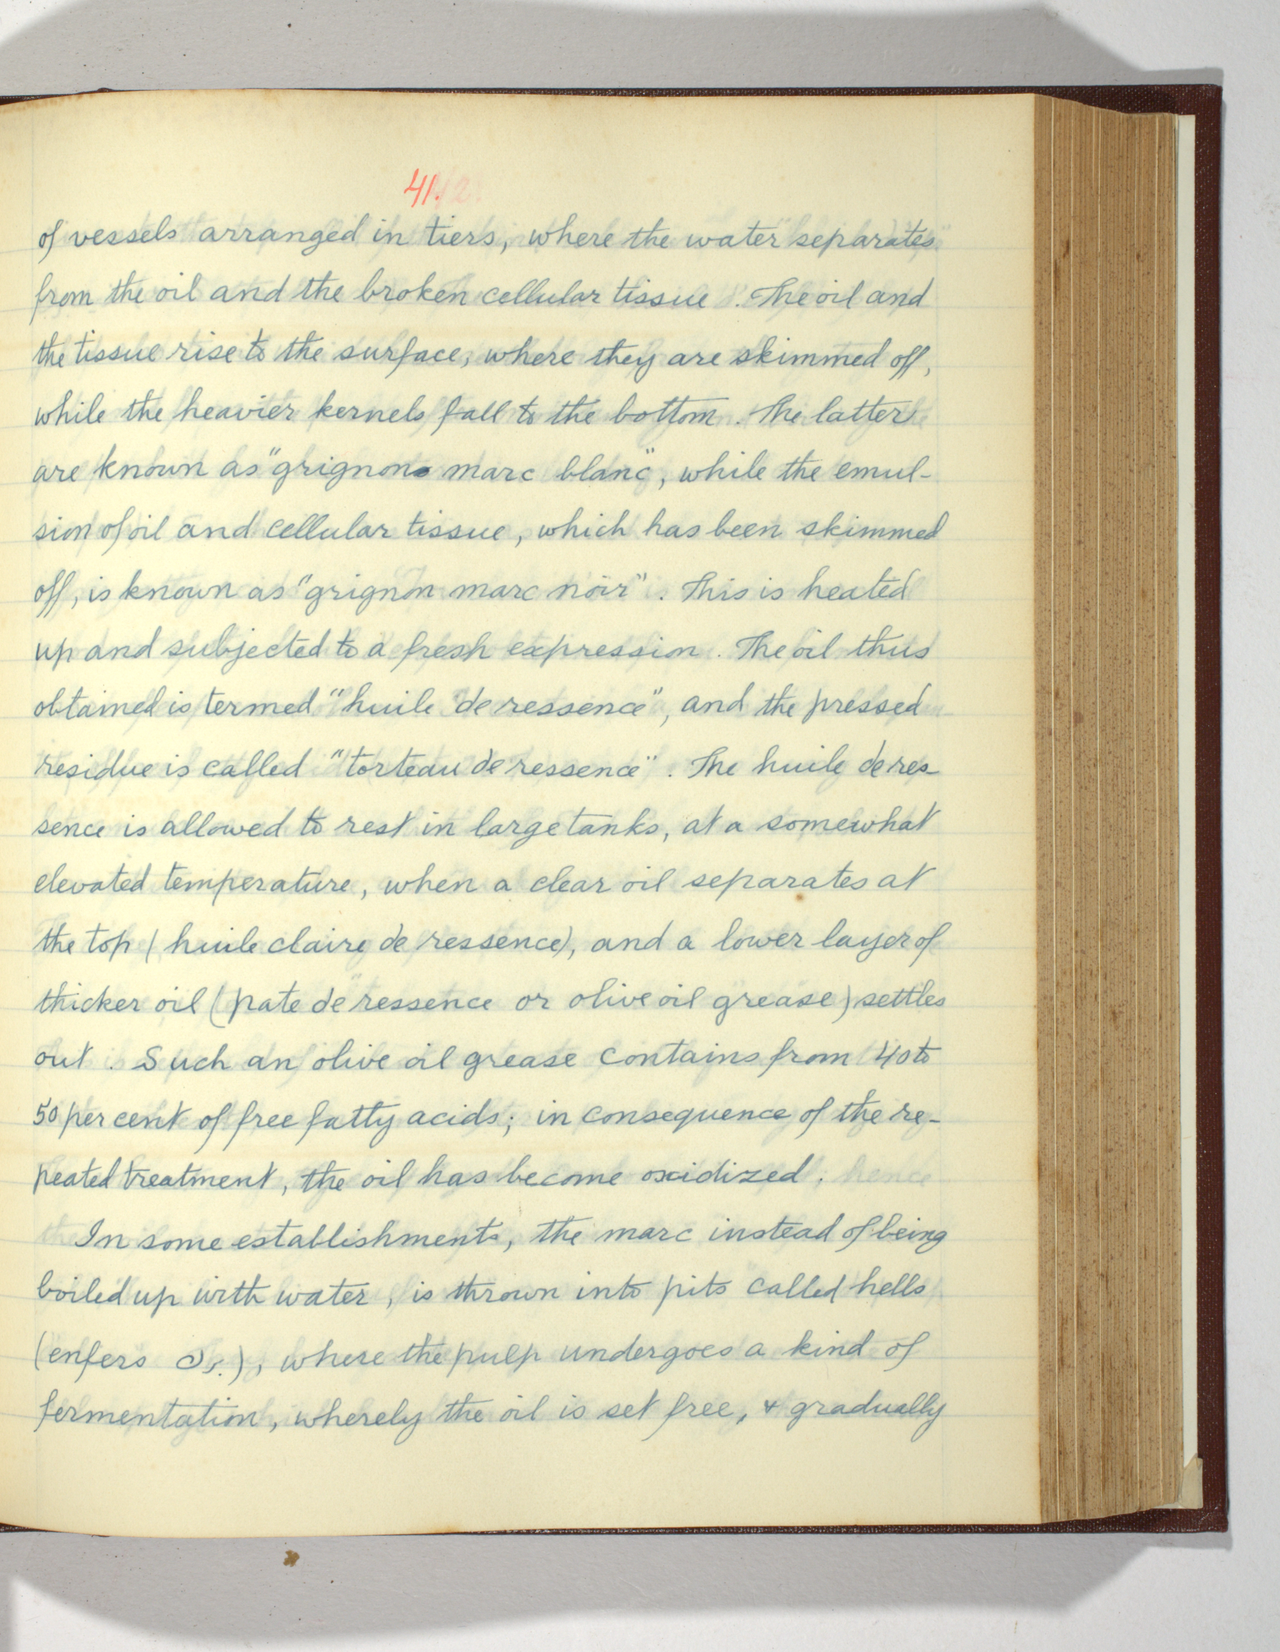 41.
of vessels arranged in tiers, where the water separates
from the oil and the broken cellular tissue. The oil and
the tissue rise to the surface, where they are skimmed off,
while the heavier kernels fall to the bottom. The latter
are known as "grignons marc blanc", while the emul-
sion of oil and cellular tissue, which has been skimmed
off, is known as "grignon marc noir". This is heated
up and subjected to a fresh expression. The oil thus
obtained is termed "huile de ressence", and the pressed
residue is called "torteau de ressence". The huile de res-
sence is allowed to rest in large tanks, at a somewhat
elevated temperature, when a clear oil separates at
the top (huile claire de ressence), and a lower layer of
thicker oil (pate de ressence or olive oil grease) settles
out. Such an olive oil grease contains from 40 to
50 per cent of free fatty acids; in consequence of the re-
peated treatment, the oil has become oxidized.
In some establishments, the marc instead of being
boiled up with water, is thrown into pits called hells
(enfers Fr.), where the pulp undergoes a kind of
fermentation, wherely the oil is set free, & gradually